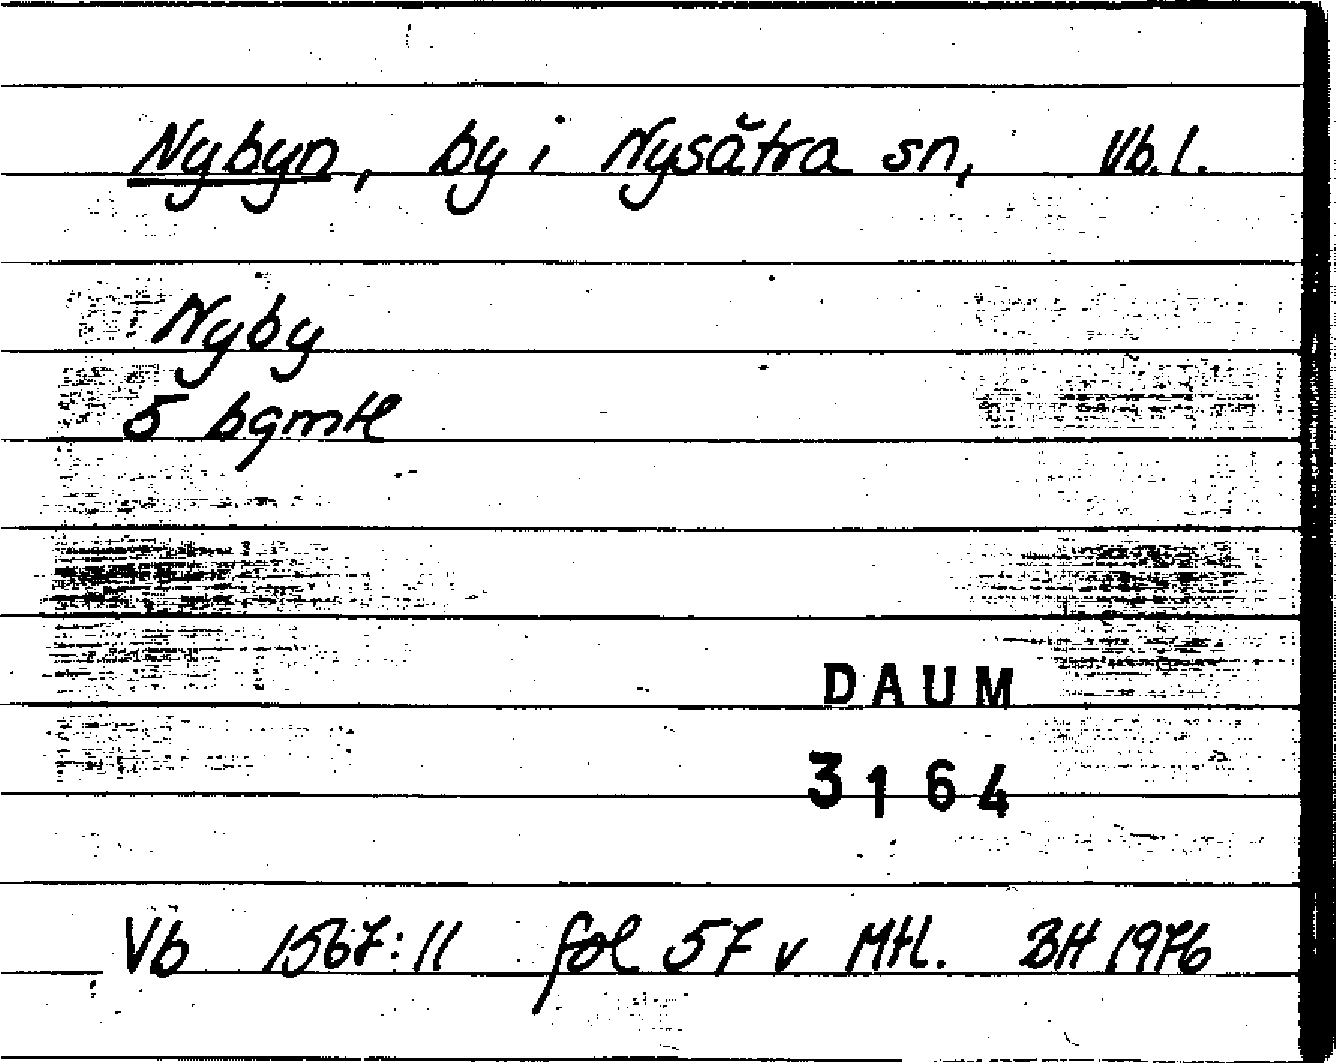 Nybyn, by i Nysätra sn, Vb. l.
Nyby
5 bgmtl
DAUM
3164
Vb 1567:11 fol 57 v Mtl. BH 1976